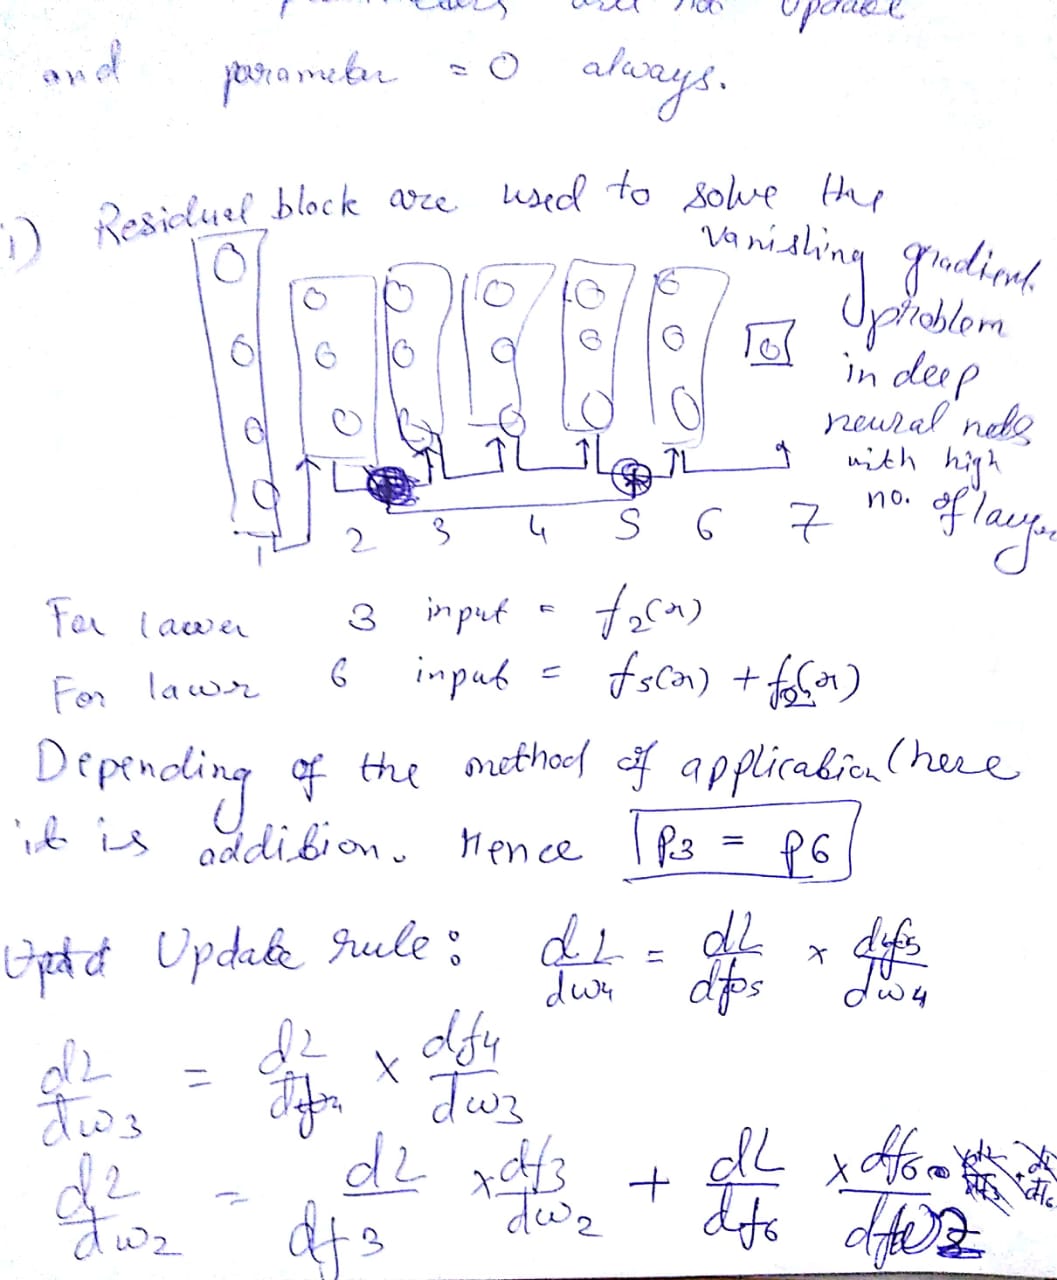 are not update
and parameter = 0 always.
i) Residual block are used to solve the
vanishing gradient
problem
in deep
neural nets
with high
no. of layer
1 2 3 4 5 6 7
For lawer 3 input = f2(x)
For lawr 6 input = f5(x) + f2(x)
Depending of the method of application (here
it is addition. Hence P3 = P6
Update rule: dL/dw4 = dL/df5 × df5/dw4
dL/dw3 = dL/df4 × df4/dw3
dL/dw2 = dL/df3 × df3/dw2 + dL/df6 × df6/dw2